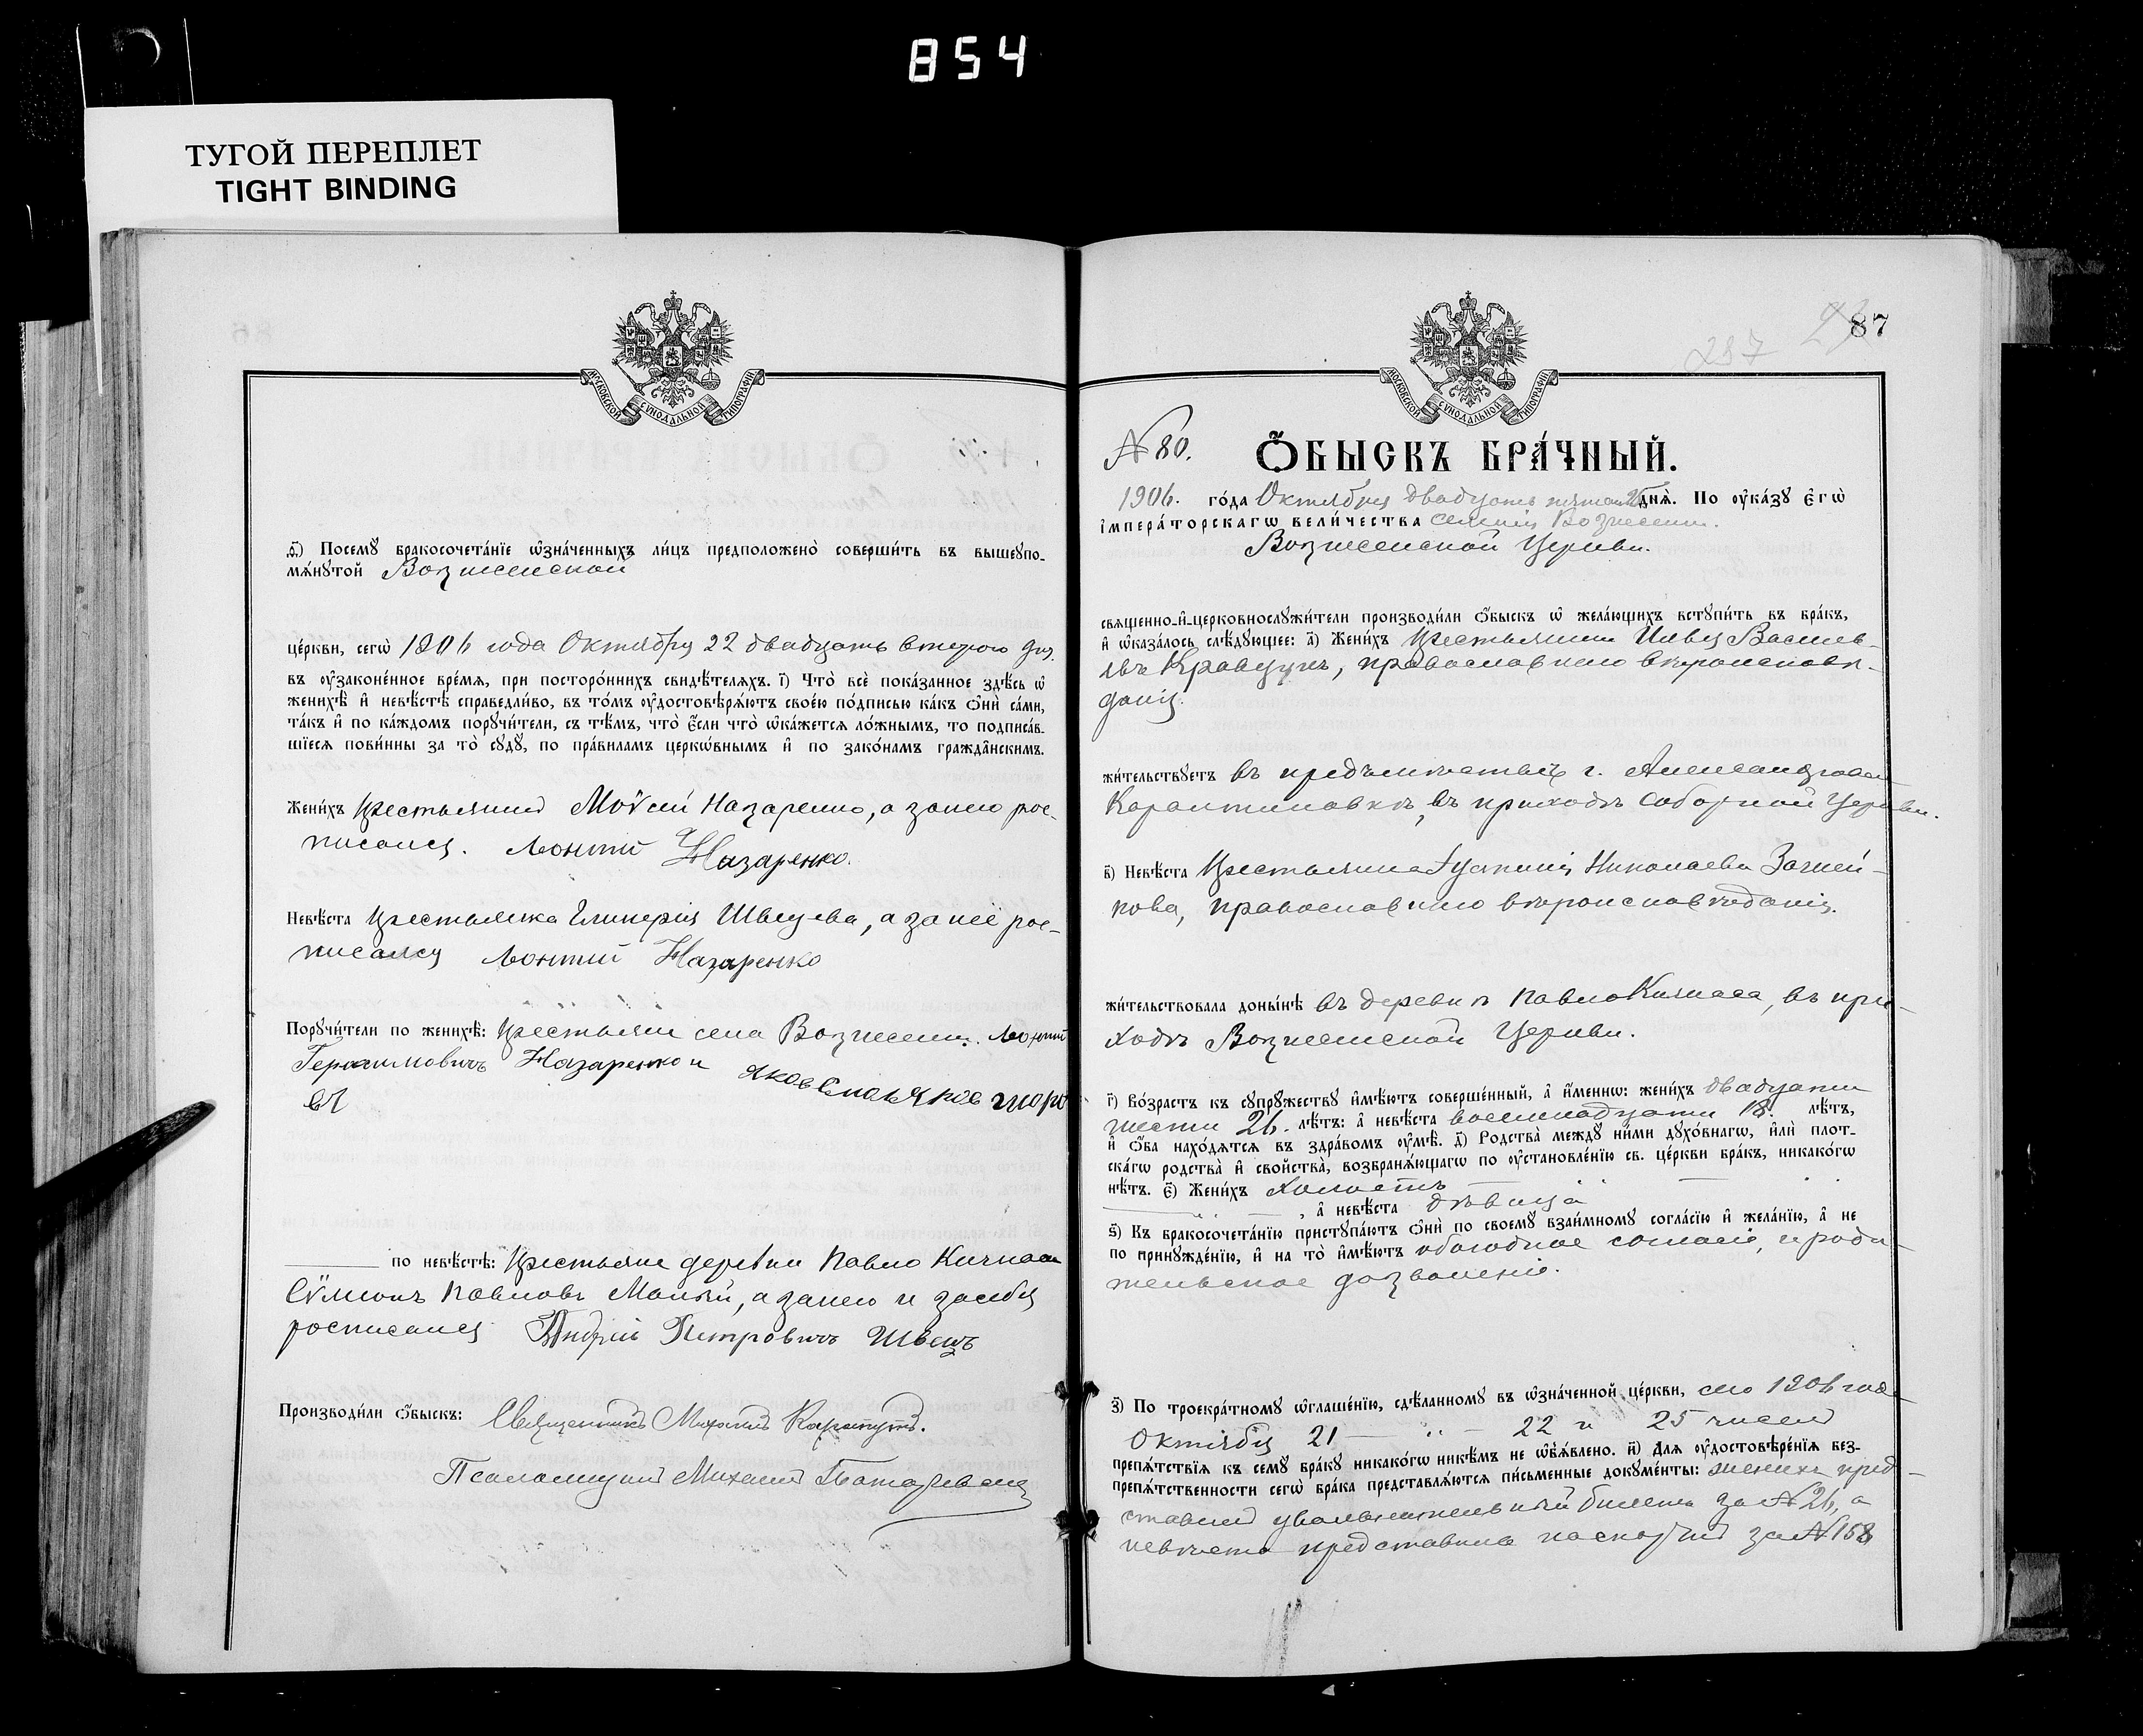 854
ТУГОЙ ПЕРЕПЛЕТ
TIGHT BINDING
МОСКОВСКОЙ СѴНОДАЛЬНОЙ ТИПОГРАФІИ
Ѳ҃) Посемꙋ̀ бракосочета́нїе ѡ҆зна́ченныхъ ли́цъ предположенѡ̀ соверши́ть въ вышеꙋпо-
мѧ́нꙋтой Вознесенской
це́ркви, сегѡ̀ 1906 года Октября 22 двадцать второго дня
въ ᲂу҆зако́ненное вре́мѧ, при посторо́ннихъ свидѣ́телѧхъ. і҃) Что̀ всѐ пока́занное здѣ́сь ѡ҆
женихѣ̀ и҆ невѣ́стѣ справедли́во, въ то́мъ ᲂу҆достовѣрѧ́ютъ своє́ю по́дписью ка́къ ѻ҆нѝ са́ми,
та́къ и҆ по ка́ждомъ порꙋчи́тели, съ тѣ́мъ, что̀ є҆́сли что̀ ѡ҆ка́жетсѧ ло́жнымъ, то подписа́в-
шїесѧ пови́нны за то̀ сꙋдꙋ̀, по пра́виламъ церко́внымъ и҆ по зако́намъ гражда́нскимъ.
Жени́хъ крестьянинъ Моѵсей Назаренко, а за него рос-
писался. Леонтій Назаренко.
Невѣ́ста крестьянка Гликерія Швецева, а за неё рос-
писался Леонтій Назаренко
Порꙋчи́тели по женихѣ̀: крестьяне села Вознесенки. Леонтій
Герасимовичъ Назаренко и Яков
по невѣ́стѣ: крестьяне деревни Павло Кичкаса
Сѵмеонъ Павловъ Малый, а за него и за себя
росписался Андрей Петровичъ Швецъ
Производи́ли ѻ҆́быскъ: Священникъ Михаилъ
Псаломщикъ Михаилъ
87
287
МОСКОВСКОЙ СѴНОДАЛЬНОЙ ТИПОГРАФІИ
№ 80.
Ѻ҆́БЫСКЪ БРА́ЧНЫЙ.
1906. го́да Октября двадцать пятаго 25 днѧ̀. По ᲂу҆ка́зꙋ є҆гѡ̀
і҆мпера́торскагѡ вели́чества селенія Вознесенки.
Вознесенской Церкви.
свѧщенно-и҆-церковнослꙋжи́тели производи́ли ѻ҆́быскъ ѡ҆ жела́ющихъ встꙋпи́ть въ бра́къ,
и҆ ѡ҆каза́лось слѣ́дꙋющее: а҃) Жени́хъ крестьянинъ Иовъ Василь-
евъ Кравцунъ, православнаго вѣроисповѣ-
данія.
жи́тельствꙋетъ въ предмѣстьѣ г. Александровска
Карантиновкѣ, въ приходѣ Соборной Церкви.
в҃) Невѣ́ста крестьянка Іустинія Николаева Загней-
кова, православнаго вѣроисповѣданія.
жи́тельствовала доны́нѣ въ деревнѣ Павло Кичкаса, въ при-
ходѣ Вознесенской Церкви.
г҃) Во́зрастъ къ сꙋпрꙋ́жествꙋ и҆мѣ́ютъ соверше́нный, а҆ и҆́меннѡ: жени́хъ двадцати
шести 26. лѣ́тъ: а҆ невѣ́ста восемнадцати 18. лѣ́тъ,
и҆ ѻ҆́ба нахо́дѧтсѧ въ здра́вомъ ᲂу҆мѣ̀. д҃) Родства̀ междꙋ̀ ни́ми дꙋхо́внагѡ, и҆лѝ плот-
ска́гѡ родства̀ и҆ сво́йства̀, возбранѧ́ющагѡ по ᲂу҆становле́нїю св. це́ркви бра́къ, никако́гѡ
нѣ́тъ. є҃) Жени́хъ холостъ
, а҆ невѣ́ста дѣвица
ѕ҃) Къ бракосочета́нїю пристꙋпа́ютъ ѻ҆нѝ по своемꙋ̀ взаи́мномꙋ согла́сїю и҆ жела́нїю, а҆ не
по принꙋжде́нїю, и҆ на то̀ и҆мѣ́ютъ обоюдное согласіе, и роди-
тельское дозволеніе.
з҃) По троекра́тномꙋ ѡ҆глаше́нїю, сдѣ́ланномꙋ въ ѡ҆зна́ченной це́ркви, сего 1906 года
Октября 21 — " — 22 и 25 чиселъ
препѧ́тствїѧ къ семꙋ̀ бра́кꙋ никако́гѡ никѣ́мъ не ѡ҆б̾ѧ́влено. и҃) Длѧ ᲂу҆достовѣре́нїѧ без-
препѧ́тственности сегѡ̀ бра́ка представлѧ́ютсѧ пи́сьменные докꙋме́нты: женихъ пред-
ставилъ увольнительный билетъ за № 26, а
невѣста представила паспортъ за № 158